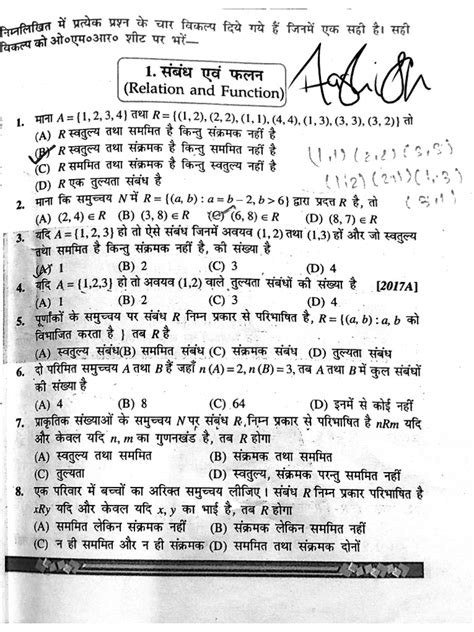 निम्नलिखित में प्रत्येक प्रश्न के चार विकल्प दिये गये हैं जिनमें एक सही है। सही
विकल्प को ओ०एम०आर० शीट पर भरें—
1. संबंध एवं फलन
(Relation and Function)
1. माना A = {1, 2, 3, 4} तथा R = {(1, 2), (2, 2), (1, 1), (4, 4), (1, 3), (3, 3), (3, 2)} तो
(A) R स्वतुल्य तथा सममित है किन्तु संक्रमक नहीं है
(B) R स्वतुल्य तथा संक्रमक है किन्तु सममित नहीं है
(C) R सममित तथा संक्रमक है किन्तु स्वतुल्य नहीं है
(D) R एक तुल्यता संबंध है
(1,1) (2,2) (3,3)
(1,2) (2,1) (1,3)
(3,1)
2. माना कि समुच्चय N में R = {(a, b) : a = b – 2, b > 6} द्वारा प्रदत्त R है, तो
(A) (2, 4) ∈ R (B) (3, 8) ∈ R (C) (6, 8) ∈ R (D) (8, 7) ∈ R
3. यदि A = {1, 2, 3} हो तो ऐसे संबंध जिनमें अवयव (1, 2) तथा (1,3) हों और जो स्वतुल्य
तथा सममित है किन्तु संक्रमक नहीं है, की संख्या है
(A) 1 (B) 2 (C) 3 (D) 4
4. यदि A = {1,2,3} हो तो अवयव (1,2) वाले तुल्यता संबंधों की संख्या है [2017A]
(A) 1 (B) 2 (C) 3 (D) 4
5. पूर्णांकों के समुच्चय पर संबंध R निम्न प्रकार से परिभाषित है, R = {(a, b) : a, b को
विभाजित करता है } तब R है
(A) स्वतुल्य संबंध (B) सममित संबंध (C) संक्रमक संबंध (D) तुल्यता संबंध
6. दो परिमित समुच्चय A तथा B हैं जहाँ n (A) = 2, n (B) = 3, तब A तथा B में कुल संबंधों
की संख्या है
(A) 4 (B) 8 (C) 64 (D) इनमें से कोई नहीं
7. प्राकृतिक संख्याओं के समुच्चय N पर संबंध R, निम्न प्रकार से परिभाषित है nRm यदि
और केवल यदि n, m का गुणनखंड है, तब R होगा
(A) स्वतुल्य तथा सममित (B) संक्रमक तथा सममित
(C) तुल्यता (D) स्वतुल्य, संक्रमक परन्तु सममित नहीं
8. एक परिवार में बच्चों का अरिक्त समुच्चय लीजिए। संबंध R निम्न प्रकार परिभाषित है
xRy यदि और केवल यदि x, y का भाई है, तब R होगा
(A) सममित लेकिन संक्रमक नहीं (B) संक्रमक लेकिन सममित नहीं
(C) न ही सममित और न ही संक्रमक (D) सममित तथा संक्रमक दोनों